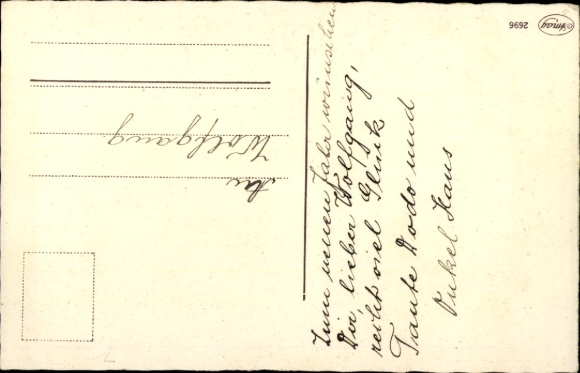 An
Wolfgang
Zum neuen Jahr wünschen
Dir, lieber Wolfgang,
recht viel Glück
Tante Dodo und
Onkel Hans
Amag
2696